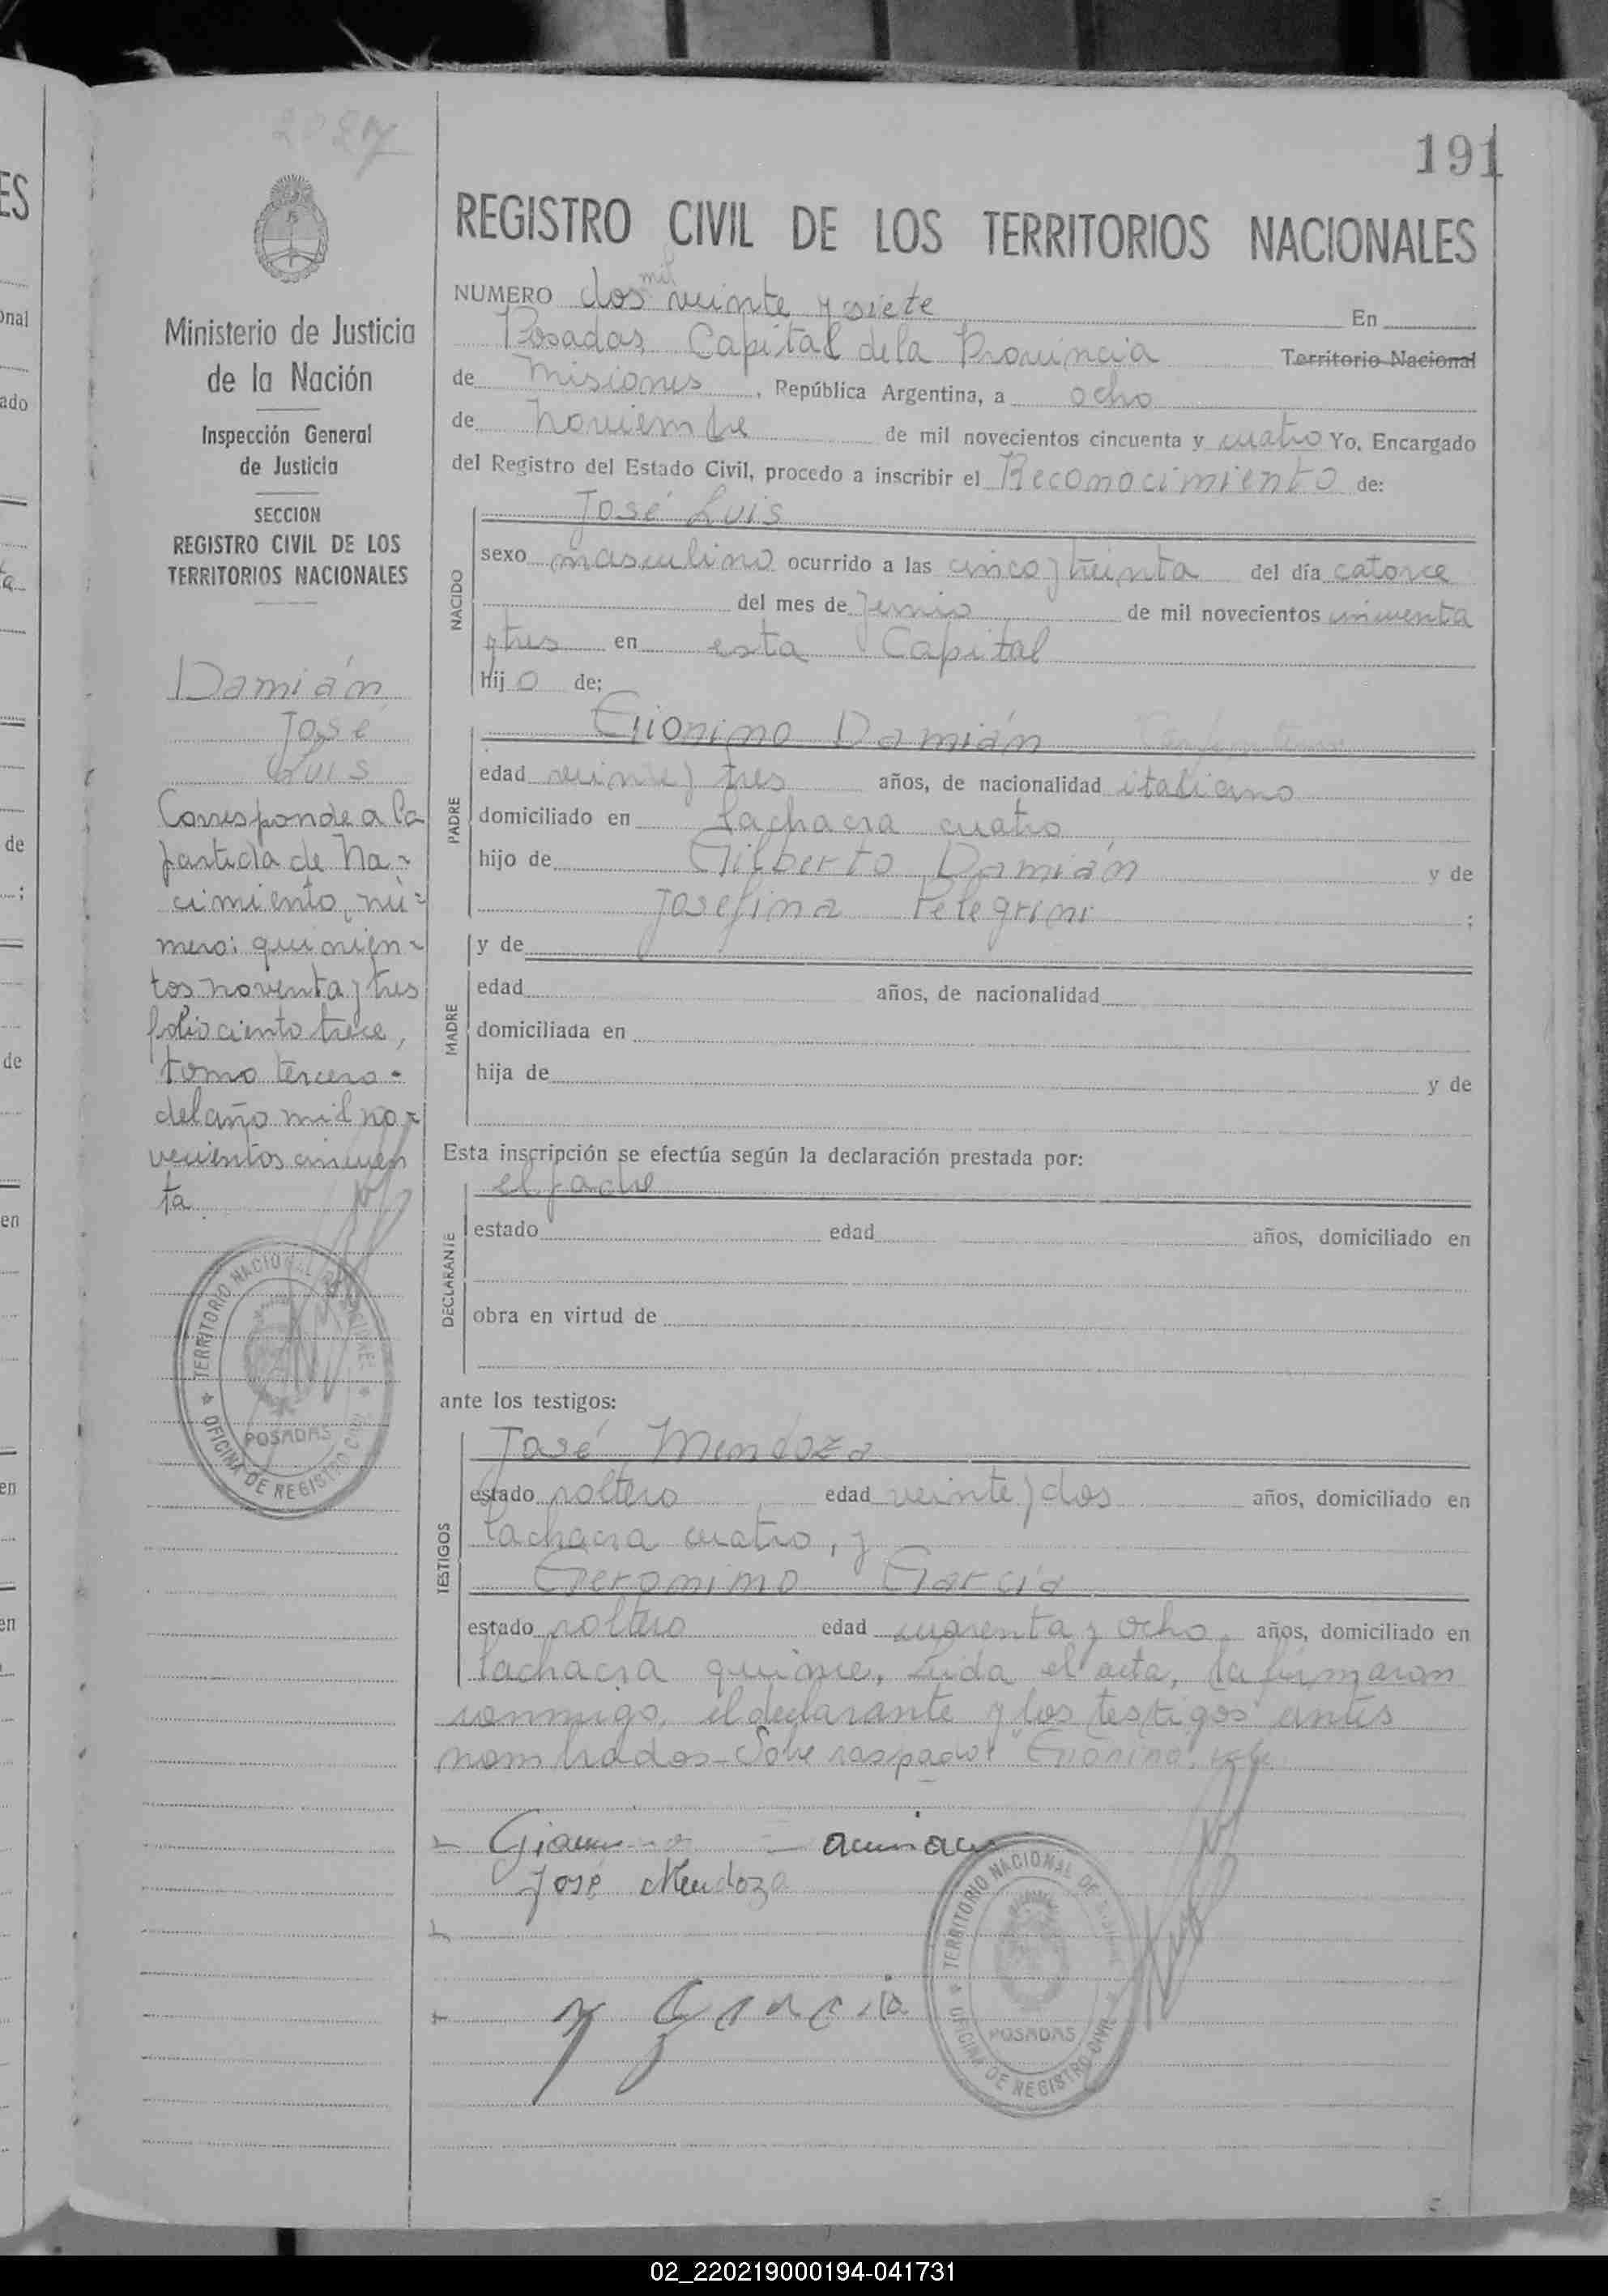 2027
191
REGISTRO CIVIL DE LOS TERRITORIOS NACIONALES
NUMERO dos mil veinte y siete En
Posadas Capital de la Provincia Territorio Nacional
de Misiones, República Argentina, a ocho
de noviembre de mil novecientos cincuenta y cuatro Yo, Encargado
del Registro del Estado Civil, procedo a inscribir el Reconocimiento de:
José Luis
NACIDO
sexo masculino ocurrido a las cinco y treinta del día catorce
del mes de junio de mil novecientos cincuenta
y tres en esta Capital
hijo de;
Gionino Damián
PADRE
edad veinte y tres años, de nacionalidad italiano
domiciliado en la chacra cuatro
hijo de Gilberto Damián y de
Josefina Pelegrini ;
y de
MADRE
edad años, de nacionalidad
domiciliada en
hija de y de
Esta inscripción se efectúa según la declaración prestada por:
el padre
DECLARANTE
estado edad años, domiciliado en
obra en virtud de
ante los testigos:
José Mendoza
TESTIGOS
estado soltero edad veinte y dos años, domiciliado en
la chacra cuatro, y
Geronimo Garcia
estado soltero edad cuarenta y ocho, años, domiciliado en
la chacra quince. Leida el acta, la firmaron
conmigo, el declarante y los testigos antes
nombrados - Sobre raspado: "Gionino". vale
José Mendoza
Garcia
TERRITORIO NACIONAL DE MISIONES
POSADAS
OFICINA DE REGISTRO CIVIL
Ministerio de Justicia
de la Nación
Inspección General
de Justicia
SECCION
REGISTRO CIVIL DE LOS
TERRITORIOS NACIONALES
Damián
José
Luis
Corresponde a la
partida de Na-
cimiento, nú-
mero: quinien-
tos noventa y tres
folio ciento trece,
tomo tercero-
del año mil no-
vecientos cincuen
ta.
TERRITORIO NACIONAL DE MISIONES
POSADAS
OFICINA DE REGISTRO CIVIL
02_220219000194-041731